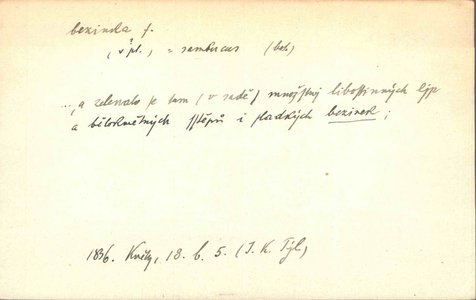 bezinka f.
(v pl.) = sambucus (bot.)
..., a zelenalo se tam (v sadě) množství libossinných lip
a bělokwětných sstěpů i sladkých bezinek;
1836. Květy, 18. b. 5. (J. K. Tyl.)